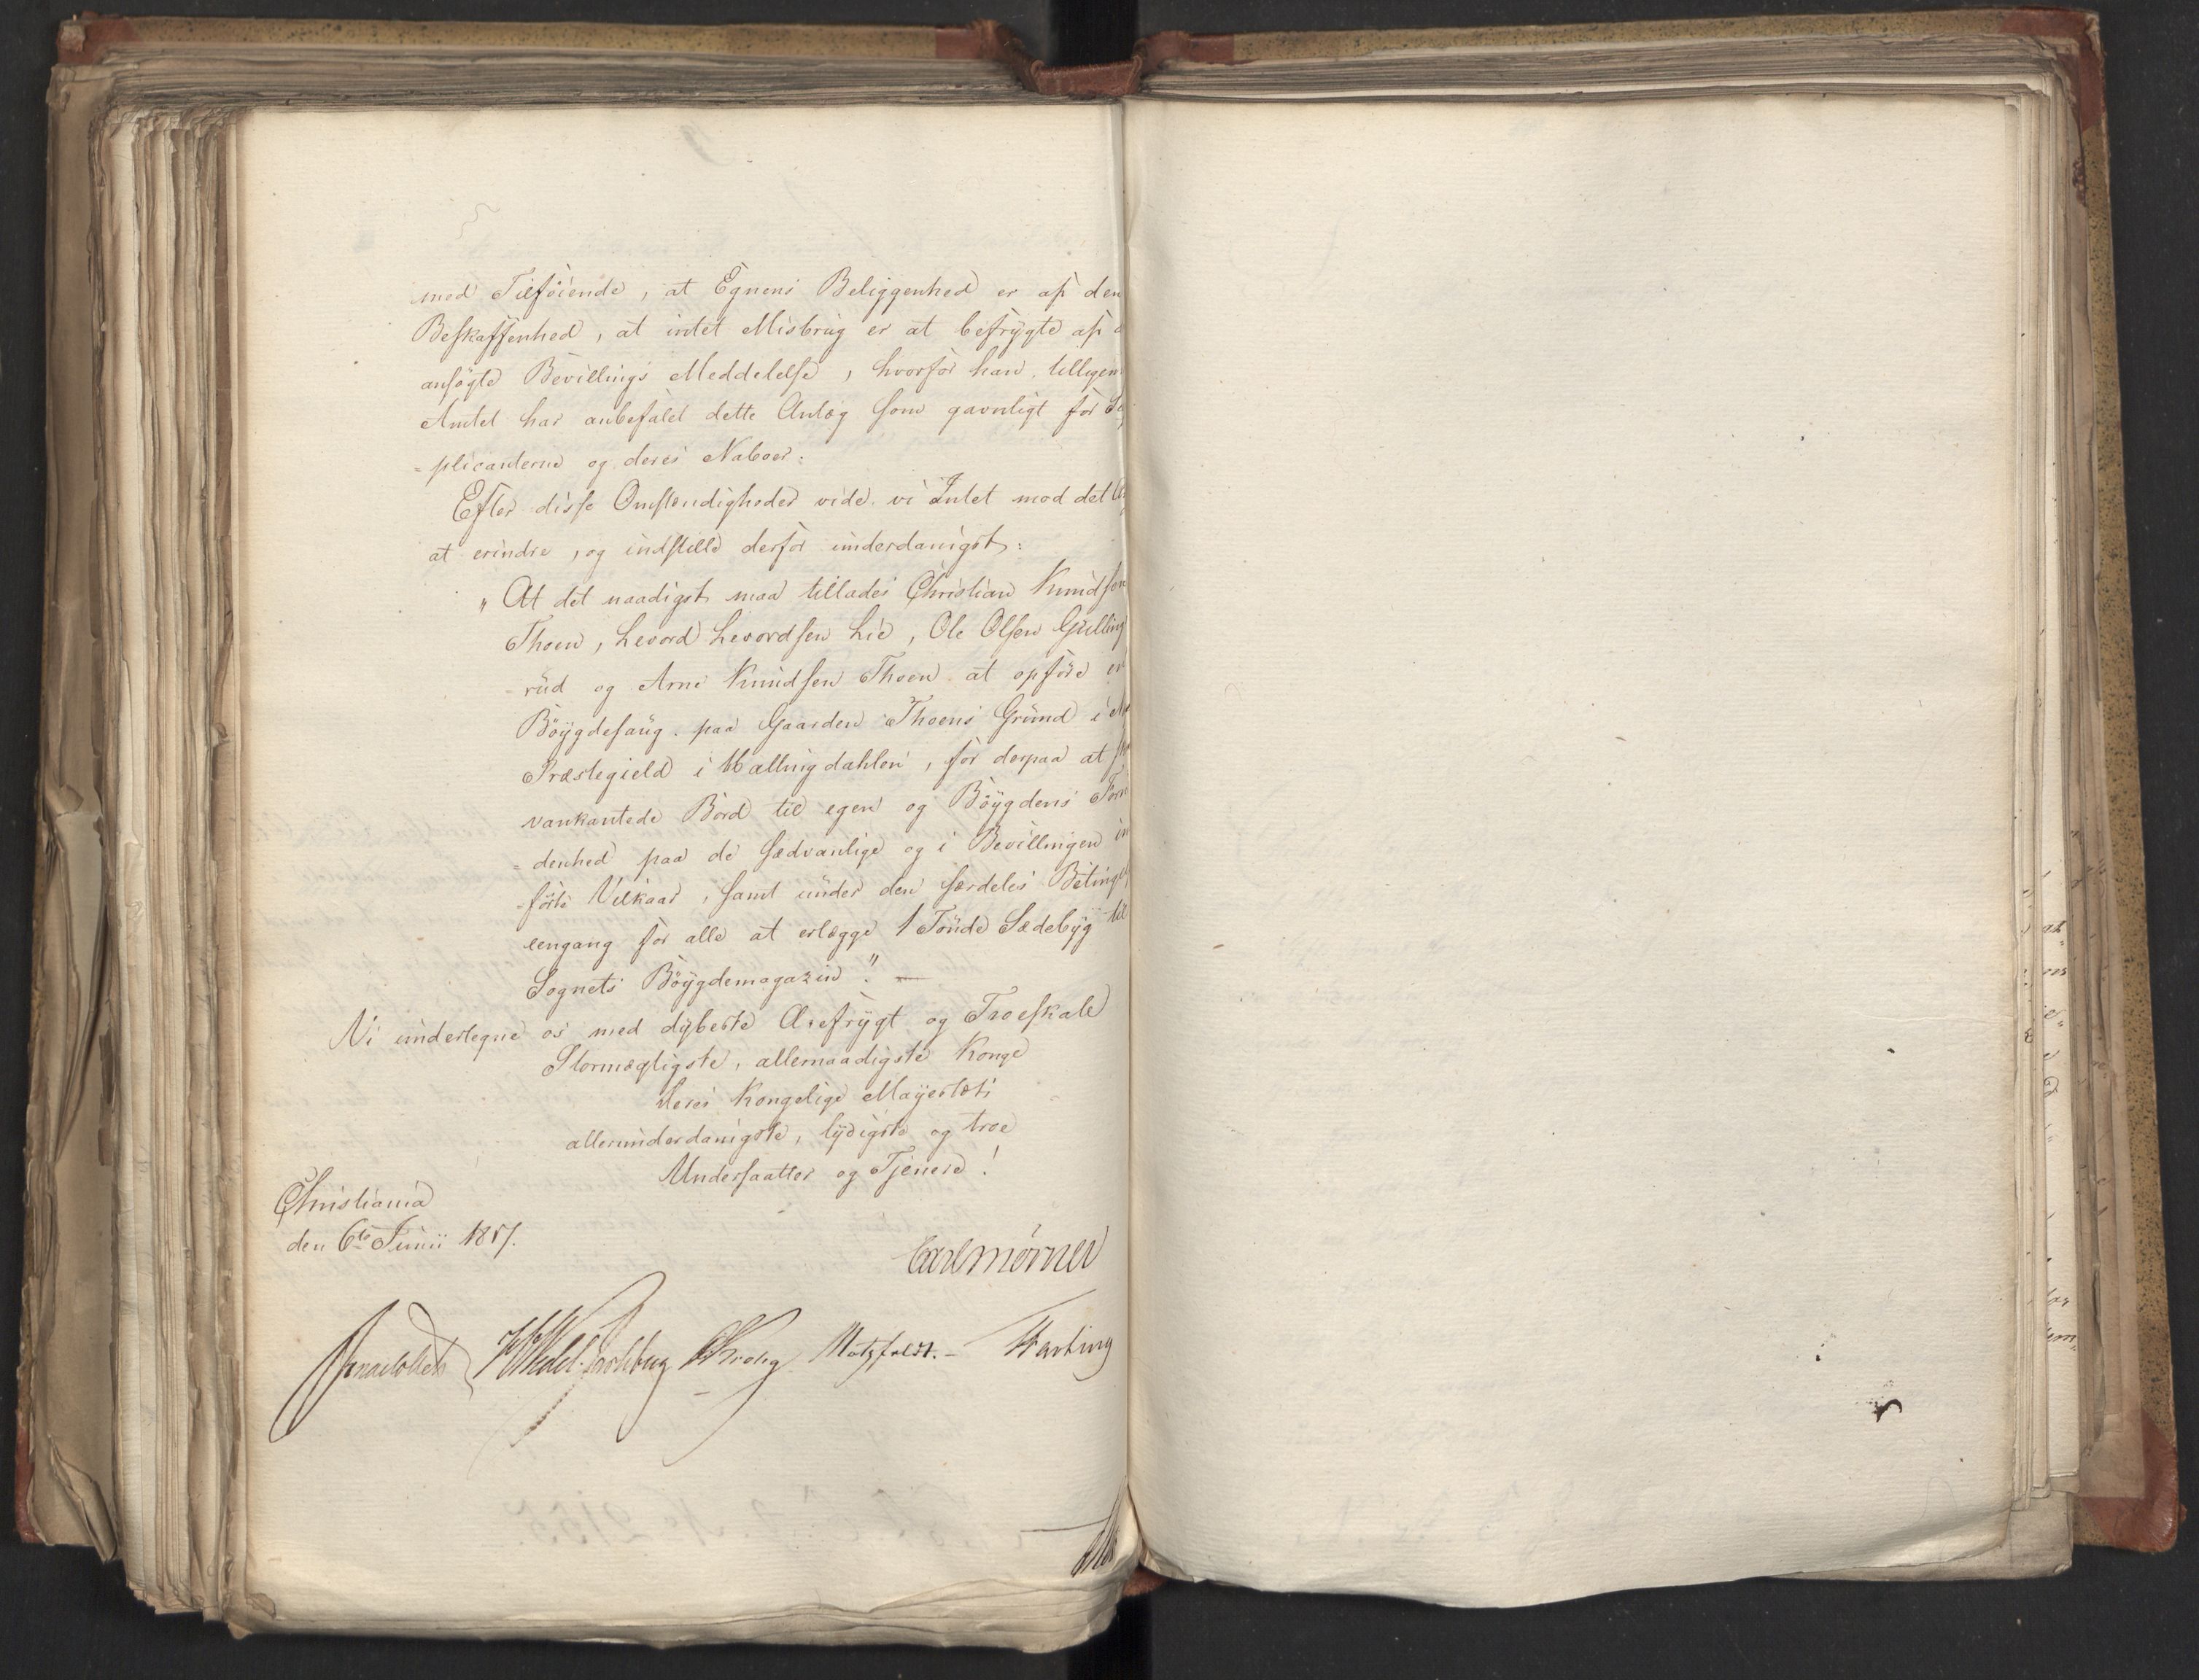 med Tilføiende, at Egnens Beliggenhed er af den
Beskaffenhed, at intet Misbrug er at befrygte af
ansøgte Bevillings Meddelelse, hvorfor han tilligem
Amtet har anbefalet dette Anlæg som gavnligt for
-plicanterne og deres Naboer.
Efter disse Omstændigheder vide vi Intet mod det
at erindre, og indstille derfor underdanigst:
„At det naadigst maa tillades Christian Knudsen
Thoen, Levord Levordsen Lie, Ole Olsen Gulling
-rud og Arne Knudsen Thoen at opføre en
Bøygdesaug paa Gaarden Thoens Grund i
Præstegield i Hallingdahlen, for derpaa at
vankantede Bord til egen og Bøygdens Forn
=denhed paa de sædvanlige og i Bevillingen in
-førte Vilkaar, samt under den særdeles Betingel
eengang for alle at erlægge 1 Tønde Sædebyg til
Sognets Bøygdemagazin". —
Vi undertegne os med dybeste Ærefrygt og Troeskab
Stormægtigste, allernaadigste Konge
Deres Kongelige Mayestæts
allerunderdanigste, lydigste og troe
Undersaatter og Tjenere!
Christiania
den 6te Junii 1817.
Carl Mörner
Wedel-Jarlsberg Krohg Motzfeldt.- Harting